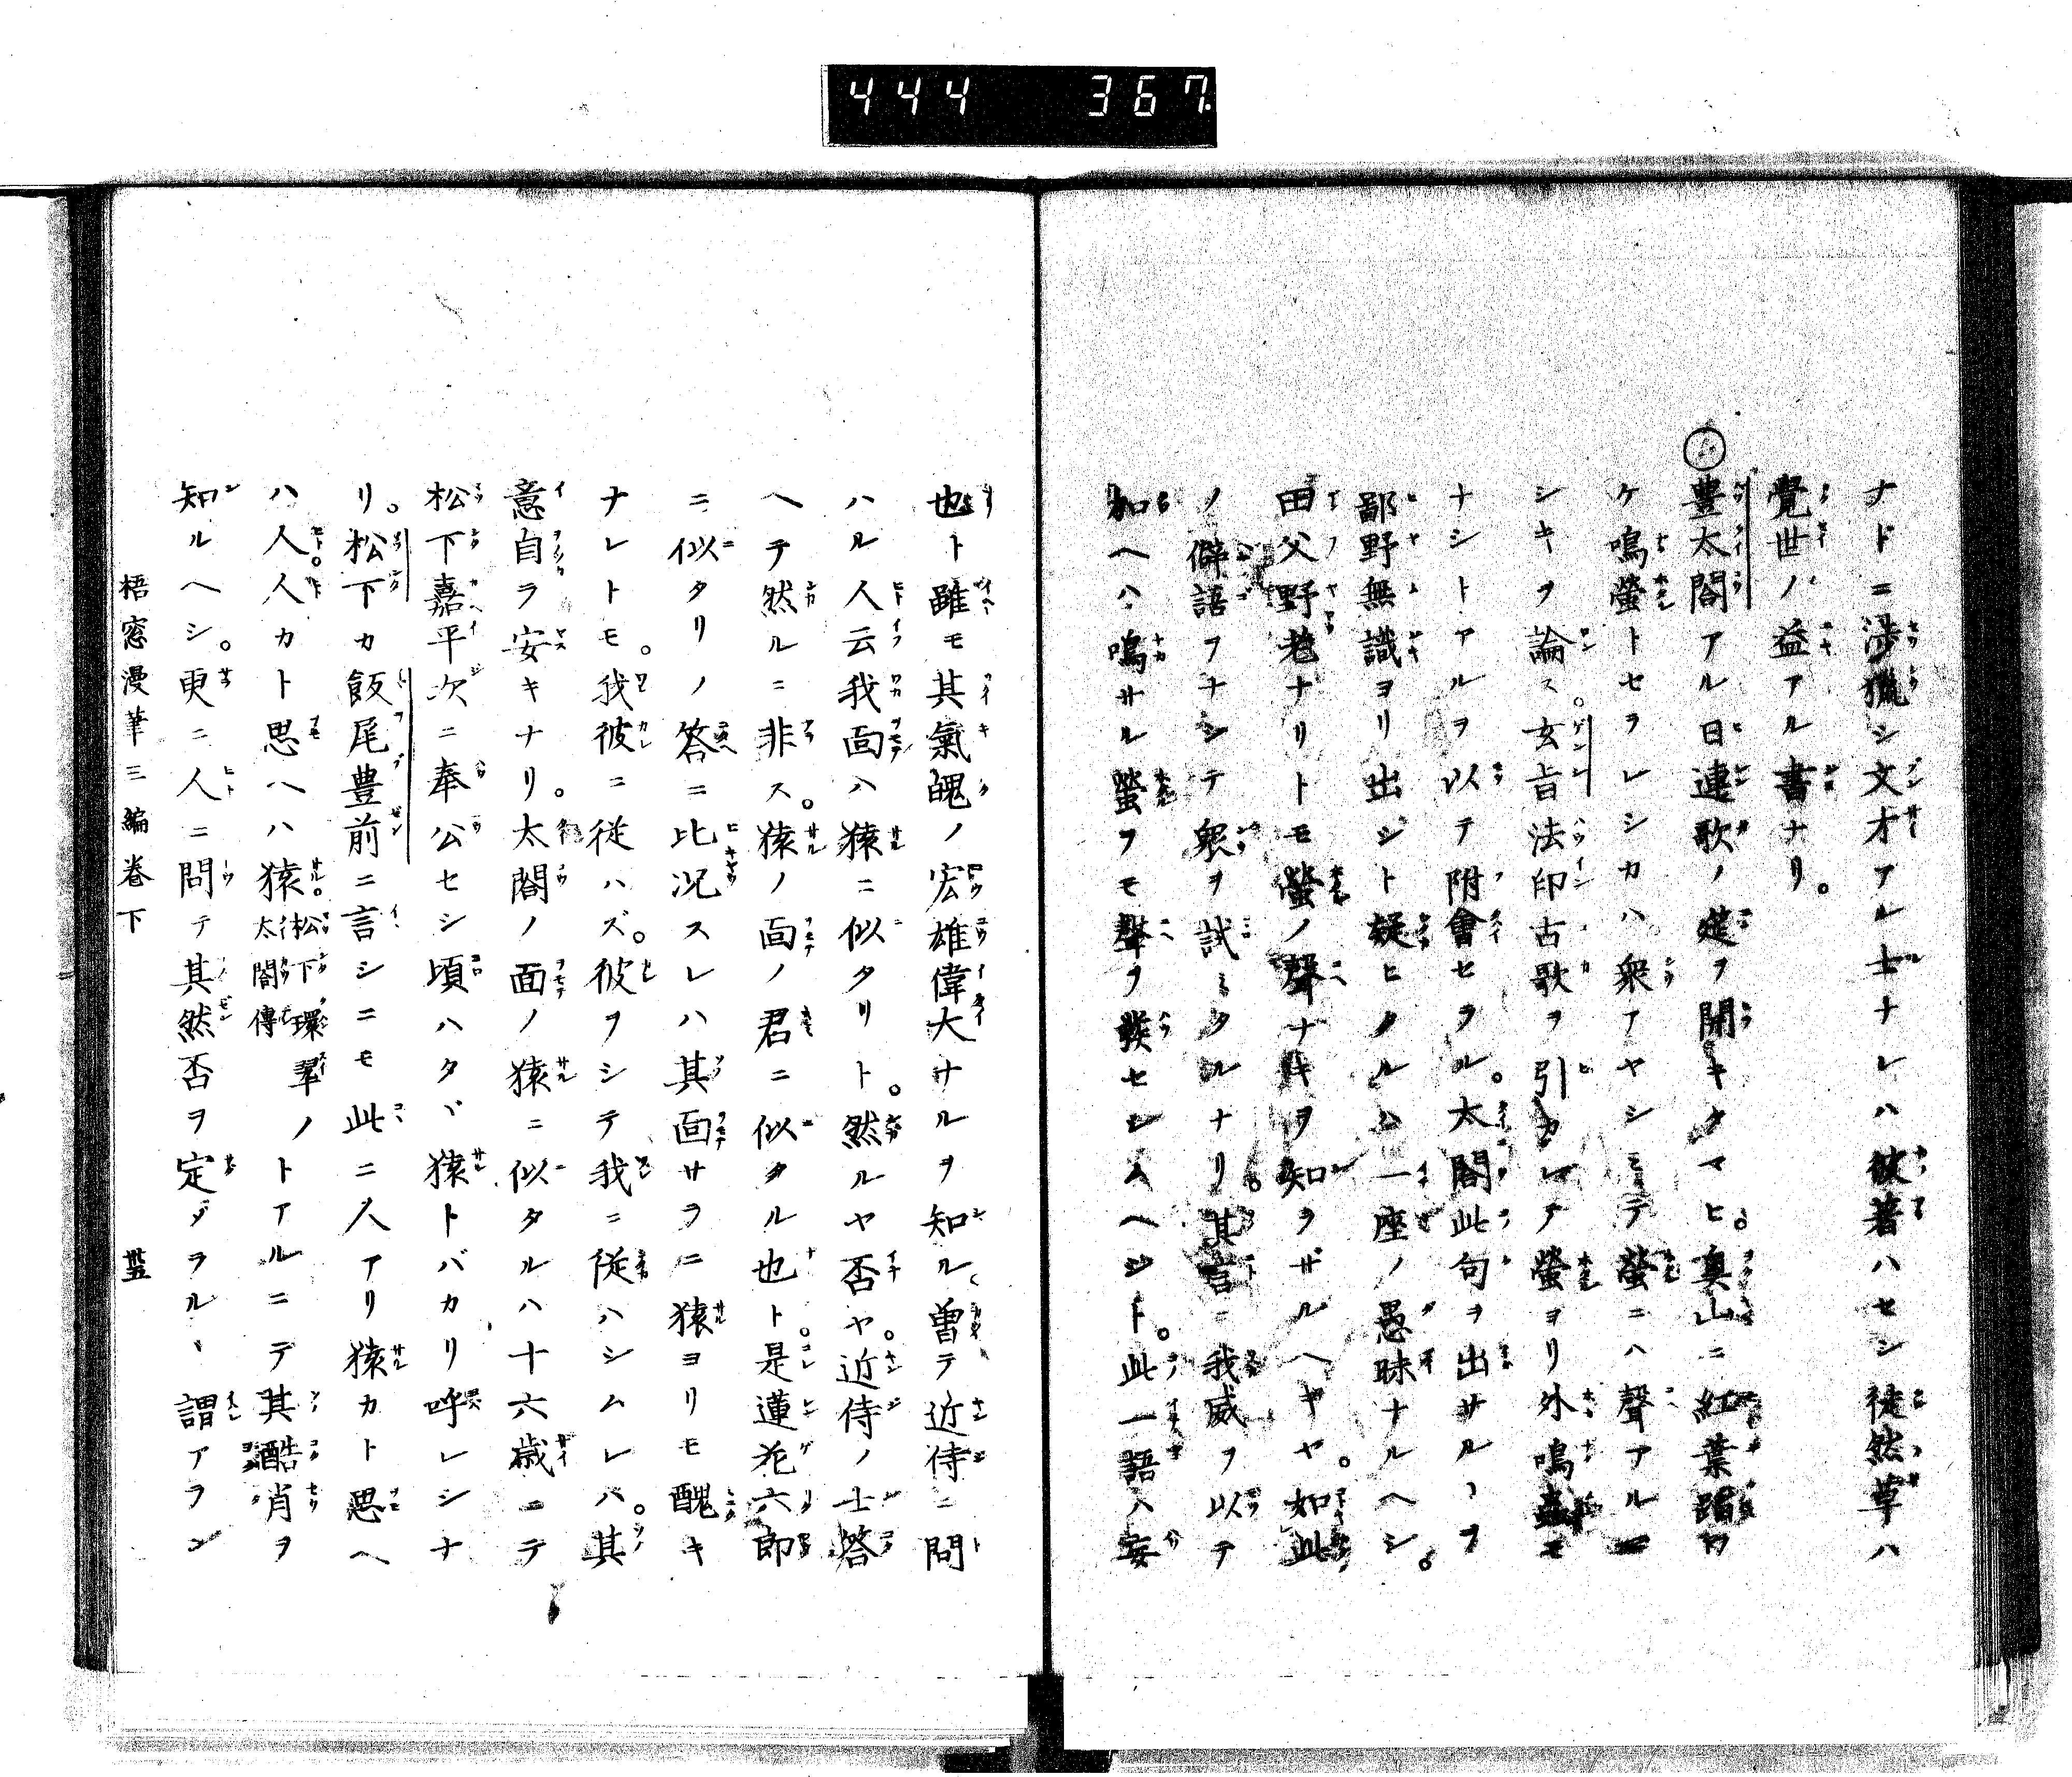 444 367
ナドニ渉獵シ文才アル士ナレハ彼著ハセシ徒然草ハ
覺世ノ益アル書ナリ。
豊太閤アル日連歌ノ筵ヲ開キタマヒ。奥山ニ紅葉蹈ワ
ケ鳴螢トセラレシカハ衆アヤシミテ螢ニハ聲アル
シキヲ論ス。玄旨法印古歌ヲ引カレテ螢ヨリ外鳴蟲モ
ナシトアルヲ以テ附會セラル。太閤此句ヲ出サルヽヲ
鄙野無識ヨリ出シト疑ヒタルハ一座ノ愚昧ナルヘシ。
田父野老ナリトモ螢ノ聲ナキヲ知ラザルヘキヤ。如此
ノ僻語ヲナシテ衆ヲ試ミタルナリ。其言ニ我威ヲ以テ
加ヘハ鳴サル螢ヲモ聲ヲ發セシムヘシト。此一語ハ妄
也ト雖モ其氣魄ノ宏雄偉大ナルヲ知ル、曽テ近侍ニ問
ハル人云我面ハ猿ニ似タリト。然ルヤ否ヤ。近侍ノ士答
ヘテ然ルニ非ス。猿ノ面ノ君ニ似タル也ト。是蓮花六郎
ニ似タリノ答ニ比况スレハ其面サラニ猿ヨリモ醜キ
ナレトモ。我彼ニ従ハズ。彼ヲシテ我ニ従ハシムレバ。其
意自ラ安キナリ。太閤ノ面ノ猿ニ似タルハ十六歳ニテ
松下嘉平次ニ奉公セシ頃ハタヾ猿トバカリ呼レシナ
リ。松下カ飯尾豊前ニ言シニモ此ニ人アリ猿カト思ヘ
ハ人。人カト思ヘハ猿。松下環翠ノ太閤傳トアルニテ其酷肖ヲ
知ルヘシ。更ニ人ニ問テ其然否ヲ定ダラルヽ謂アラン
梧窓漫筆三編巻下 卌五